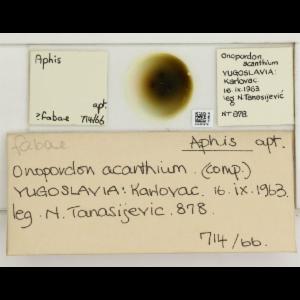 Aphis
apt.
? fabae 714/66
Onopordon
acanthium
YUGOSLAVIA:
Karlovac
16.ix.1963
leg N.Tanasijević
NT 878.
fabae
Aphis apt.
Onopordon acanthium. (comp.)
YUGOSLAVIA: Karlovac. 16.ix.1963.
leg. N. Tanasijevic. 878.
714/66.